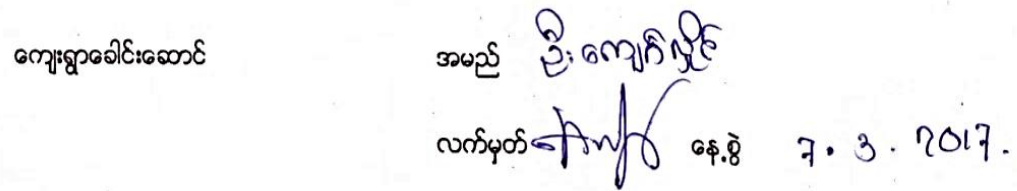 ကျေးရွာခေါင်းဆောင် အမည် ဦးကျော်လှိုင်
လက်မှတ် နေ့စွဲ 7.3.2017.